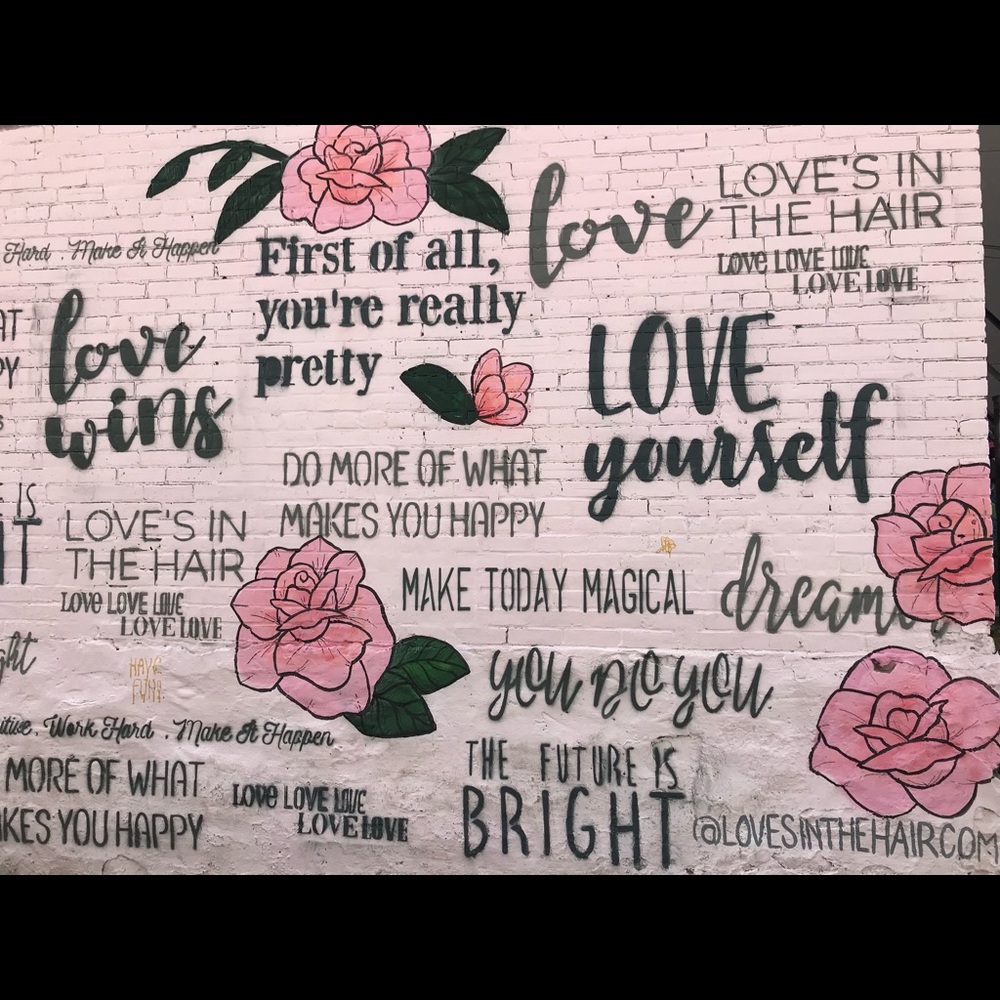 Hard . Make It Happen
First of all,
you're really
pretty
love
LOVE'S IN
THE HAIR
LOVE LOVE LOVE
LOVE LOVE
love
wins
LOVE
yourself
DO MORE OF WHAT
MAKES YOU HAPPY
IS
LOVE'S IN
THE HAIR
LOVE LOVE LOVE
LOVE LOVE
MAKE TODAY MAGICAL
dream
YOU DO YOU
HAVE
FUN!
Work Hard . Make It Happen
MORE OF WHAT
YOU HAPPY
LOVE LOVE LOVE
LOVE LOVE
THE FUTURE IS
BRIGHT
@LOVESINTHEHAIRCOM